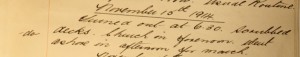 Usual Routine
November 15th 1914.
Turned out at 6.30. Scrubbed
decks. Church in forenoon. Went
ashore in afternoon for march.